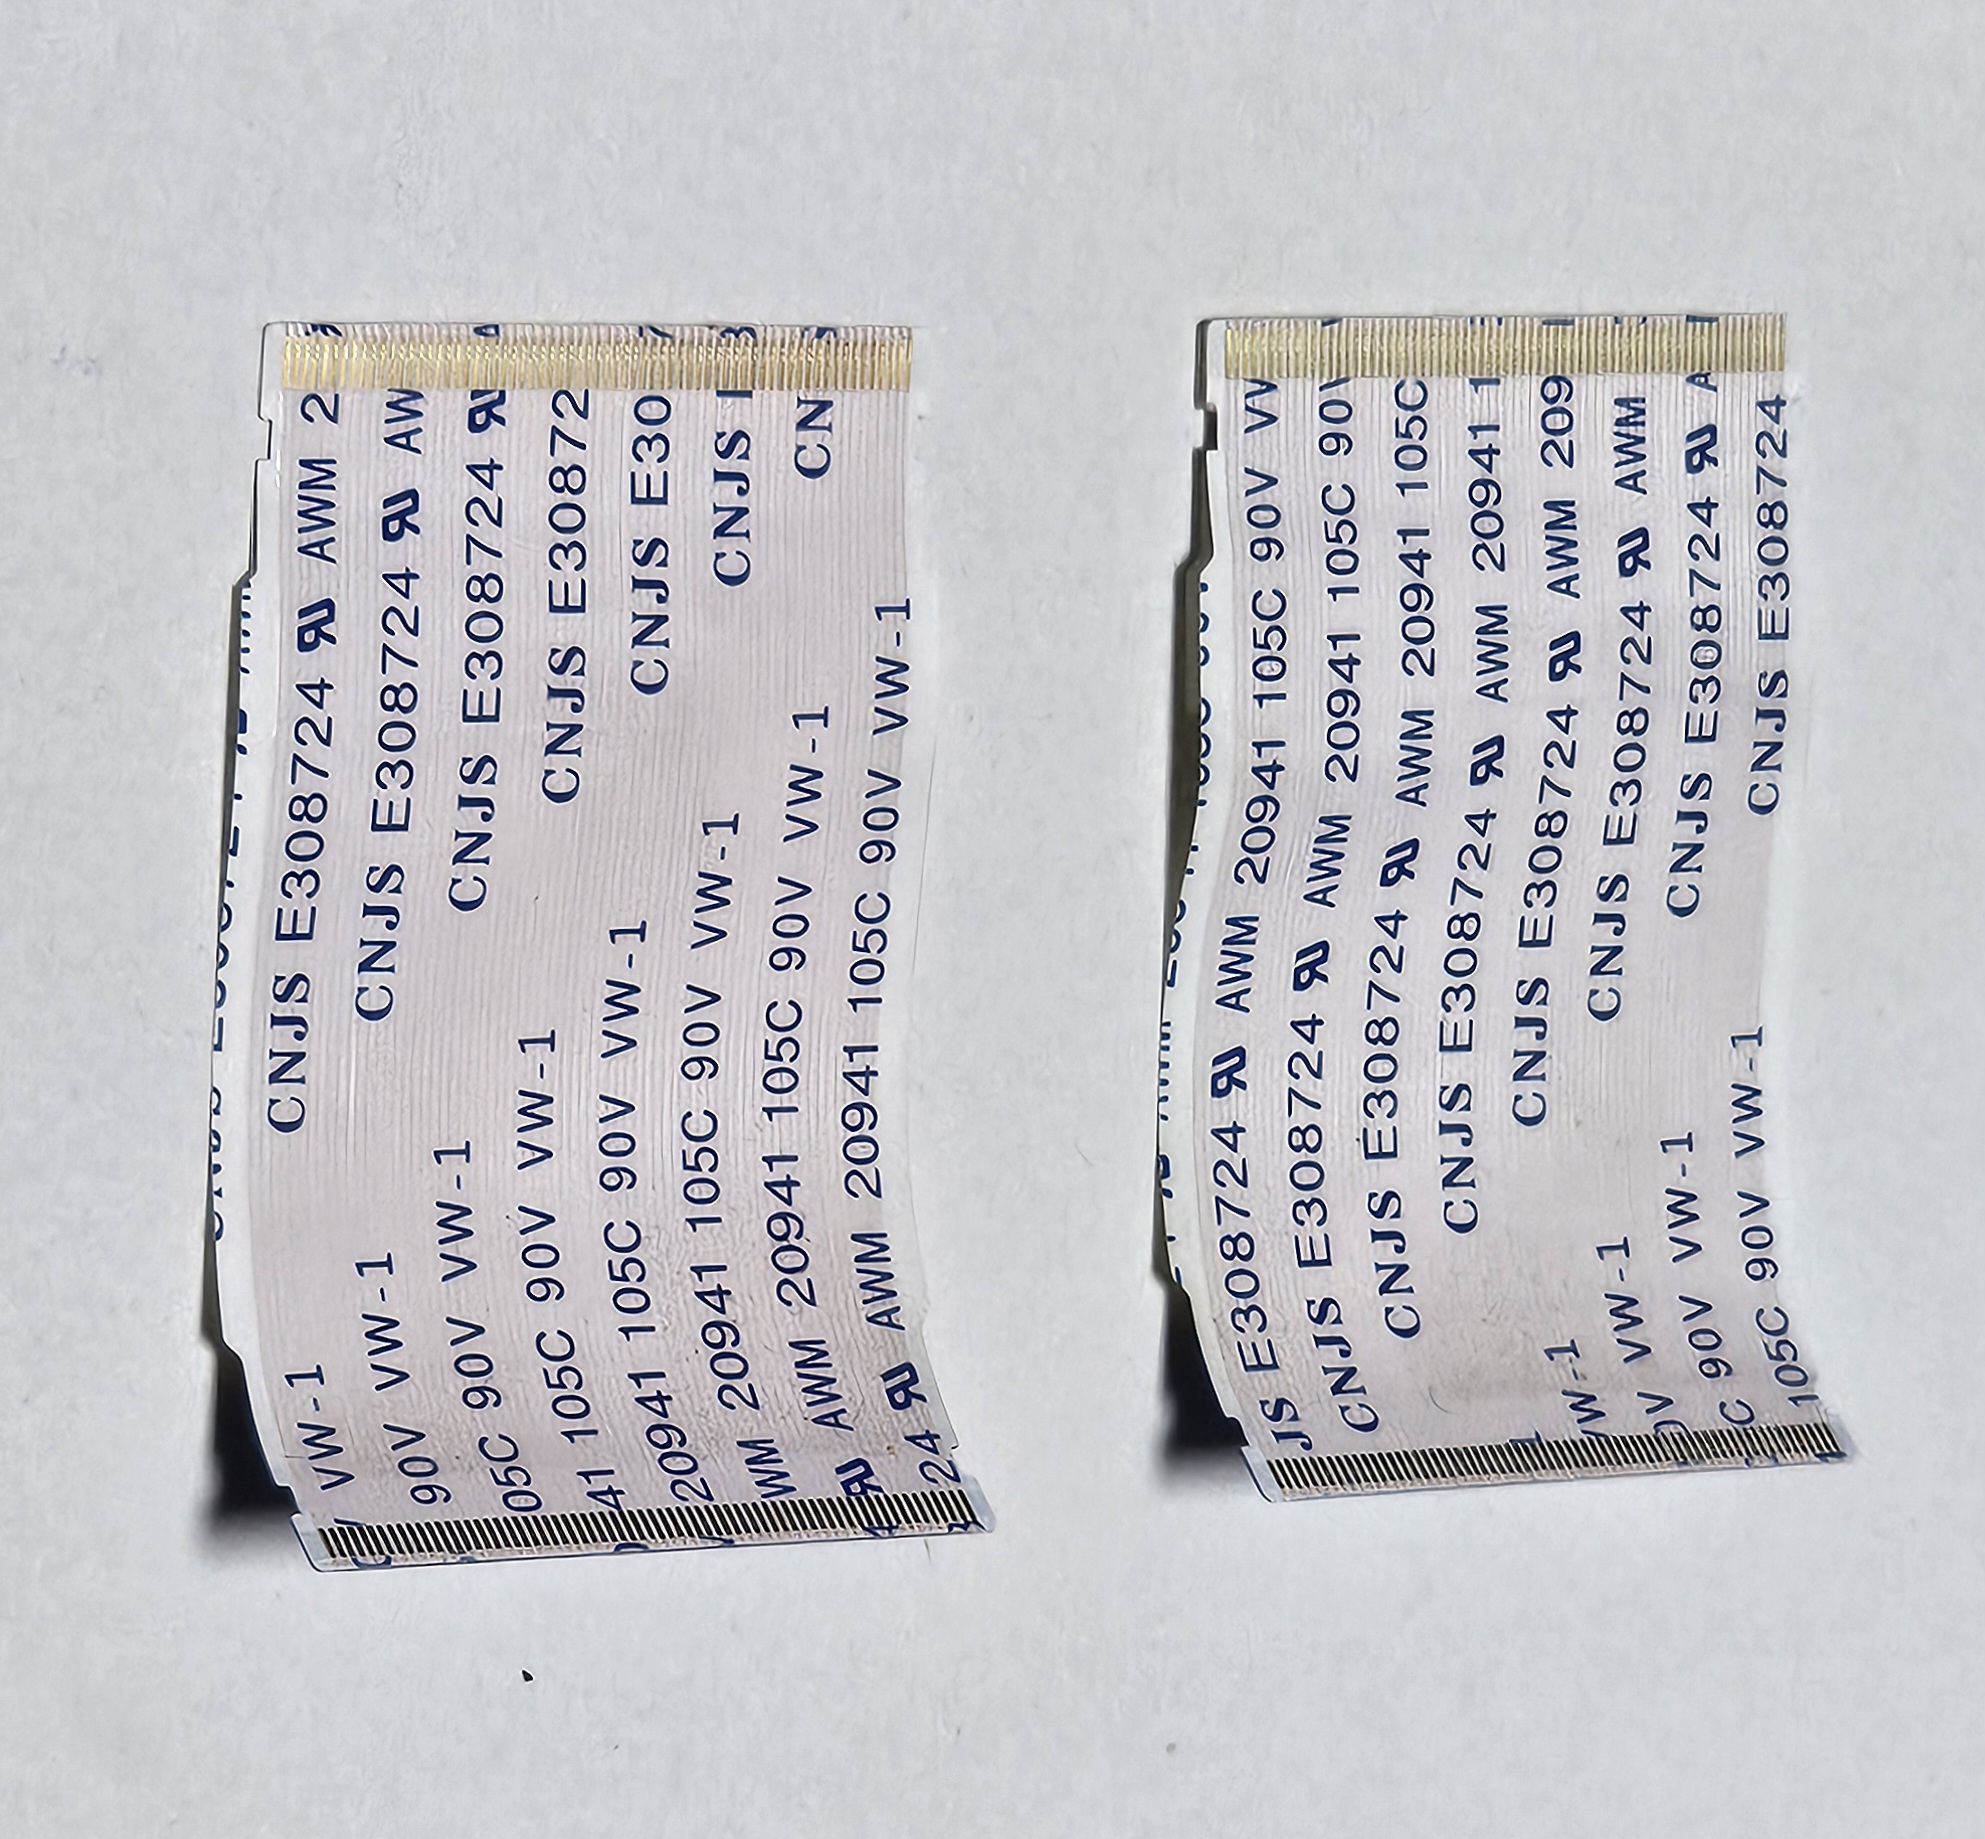 CNJS E308724 AWM 2
VW-1
CNJS E308724 AW
90V VW-1
CNJS E308724
05C 90V VW-1
CNJS E30872
41 105C 90V VW-1
CNJS E30
20941 105C 90V VW-1
CNJS
WM 20941 105C 90V VW-1
CN
AWM 20941 105C 90V VW-1
24
JS E308724 AWM 20941 105C 90V VV
CNJS E308724 AWM 20941 105C 90V
CNJS E308724 AWM 20941 105C
CNJS E308724 AWM 20941 1
CNJS E308724 AWM 209
W-1
CNJS E308724 AWM
V VW-1
CNJS E308724 A
C 90V VW-1
CNJS E308724
105C 90V VW-1